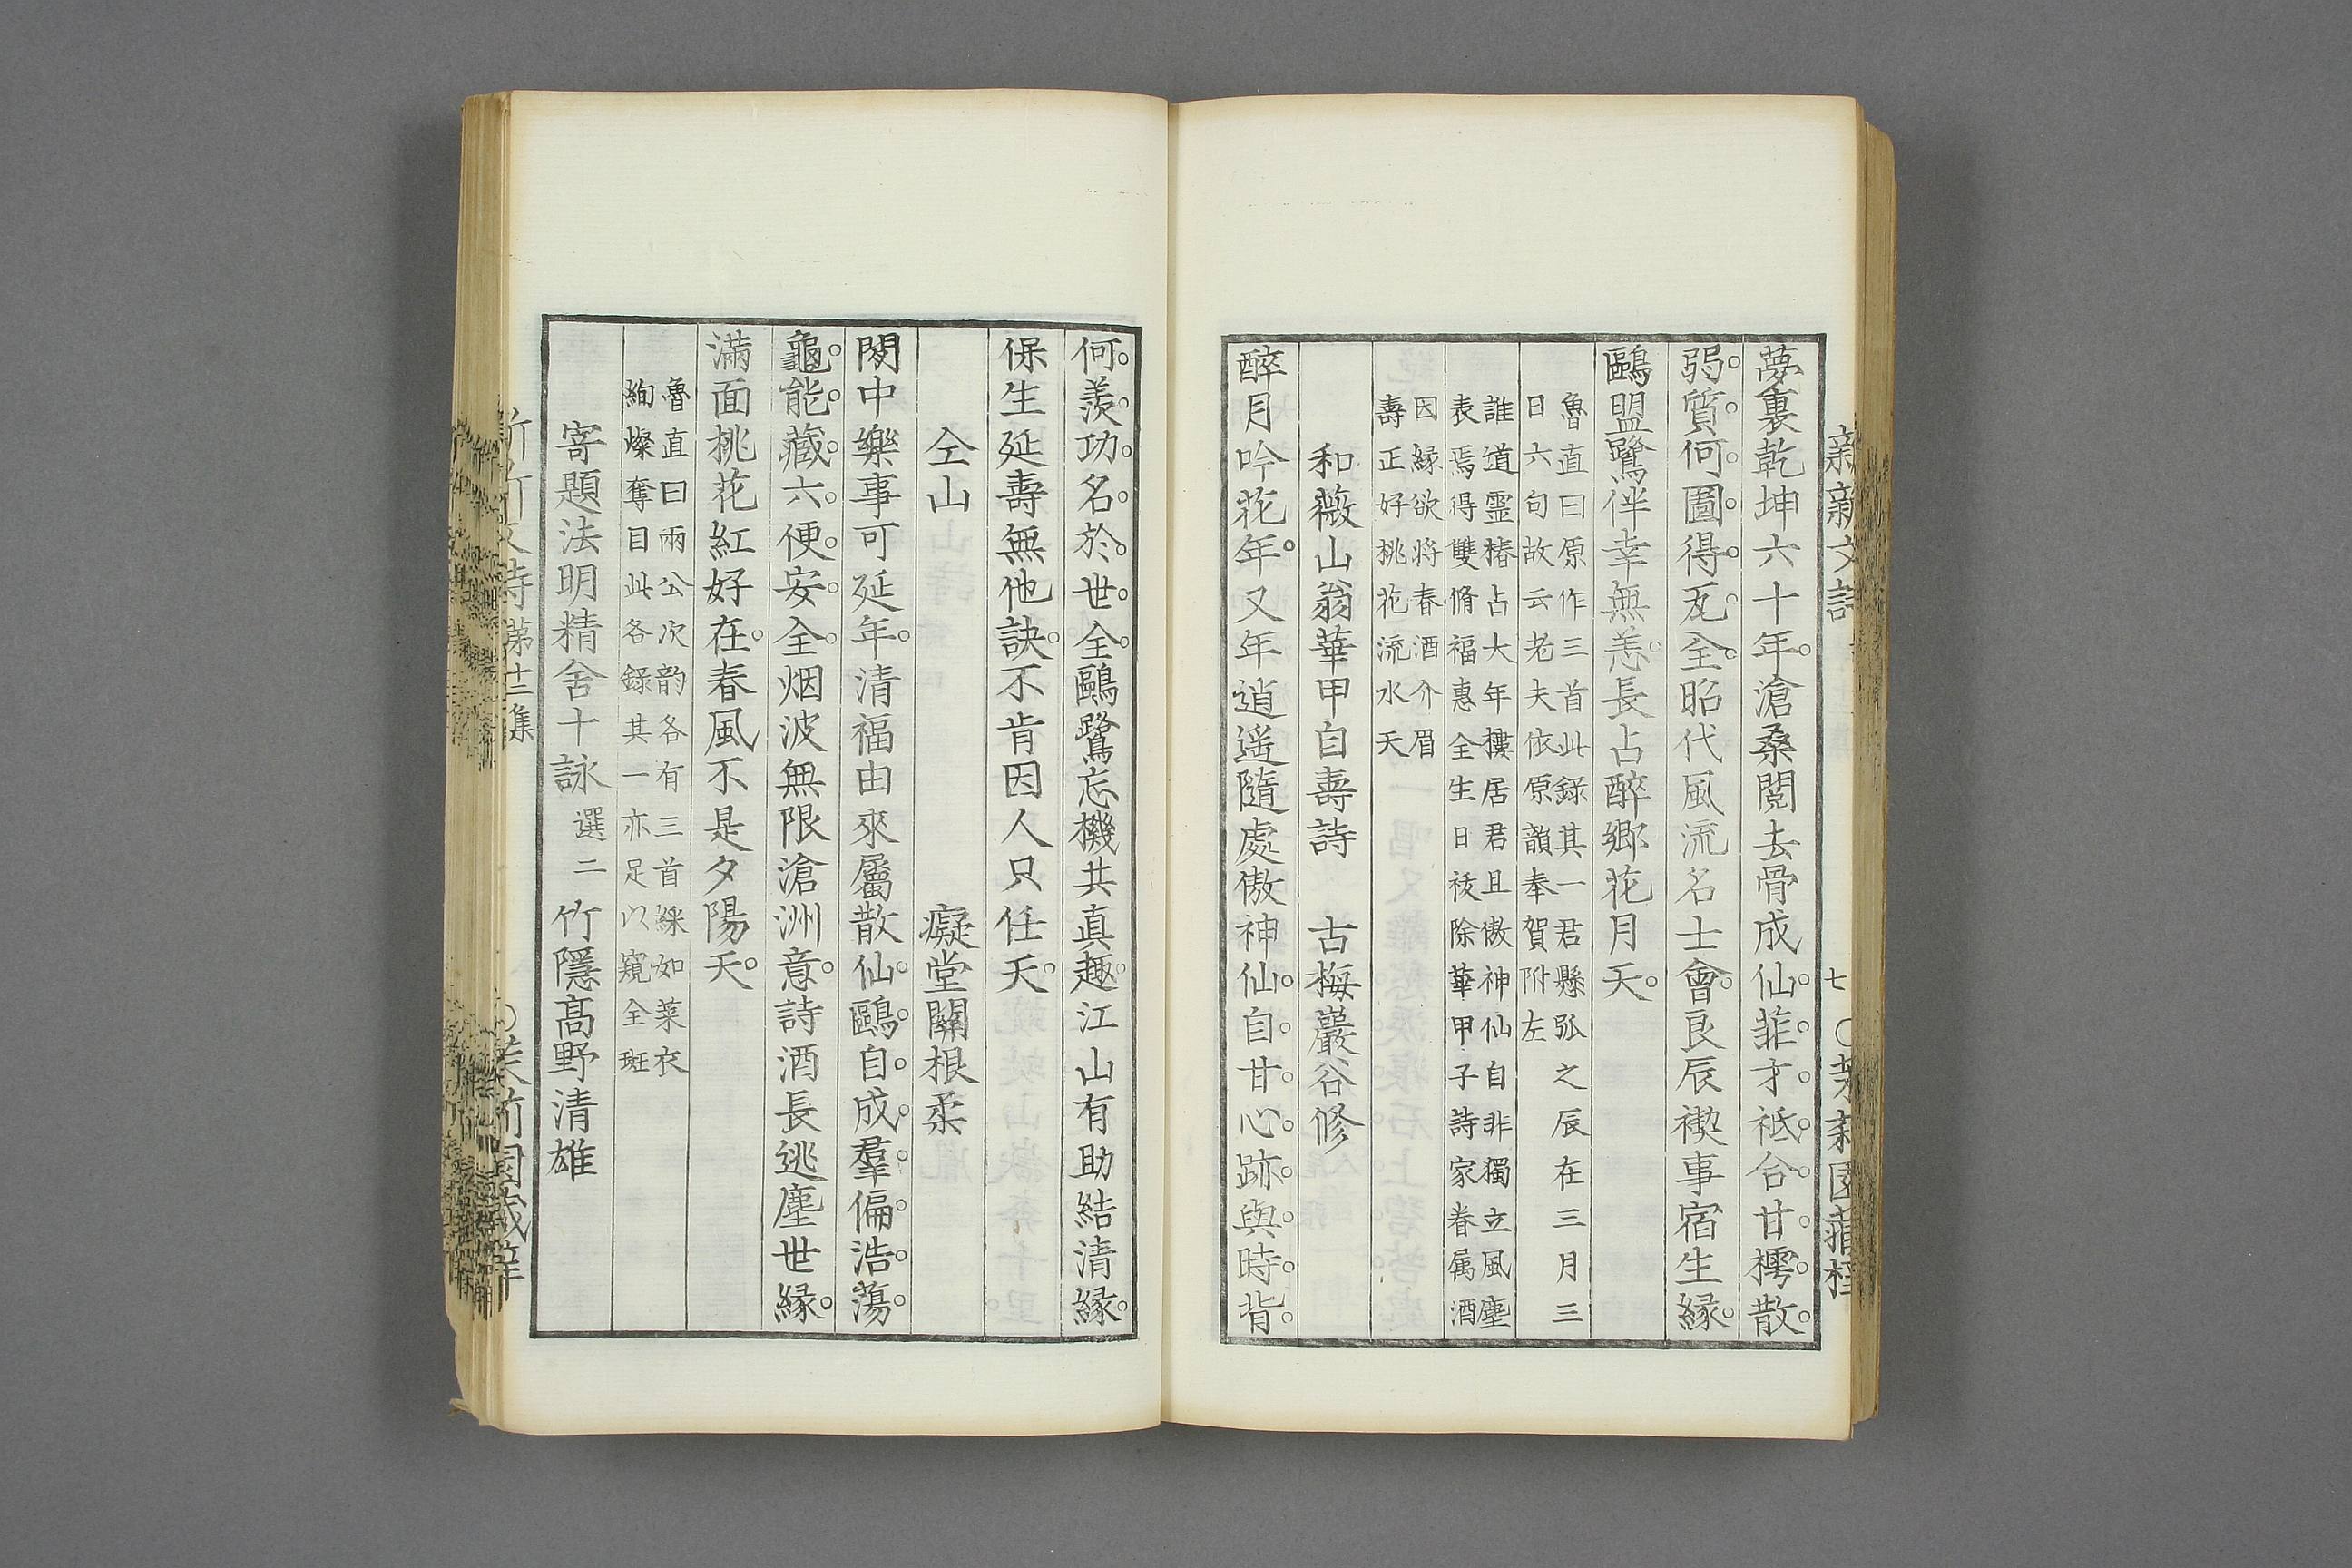 夢裏乾坤六十年。滄桑閱去骨成仙。菲才。祗。合。甘。樗。散。
弱。質。何。圖。得。瓦。全。昭代風流名士會。良辰禊事宿生緣。
鷗盟鷺伴幸無恙。長占醉鄉花月天。
魯直曰原作三首此錄其一君懸弧之辰在三月三
日六句故云老夫依原韻奉賀附左
誰道靈椿占大年樸居君且傲神仙自非獨立風塵
表焉得雙脩福惠全生日祓除華甲子詩家眷属酒
因緣欲將春酒介眉
壽正好桃花流水天
和薇山翁華甲自壽詩　古梅巖谷修
醉月吟花年。又年逍遥隨處傲神仙。自。甘。心。跡。與。時。背。
七
何。羨。功。名。於。世。全。鷗鷺忘機共真趣。江山有助結清緣。
保生延壽無他訣。不肯因人只任天。
仝山　癡堂關根柔
閑中樂事可延年。清福由來屬散仙。鷗。自。成。羣。偏。浩。蕩。
龜。能。藏。六。便。安。全。烟波無限滄洲意。詩酒長逃塵世緣。
滿面桃花紅好在。春風不是夕陽天。
魯直曰兩公次韵各有三首綵如萊衣
絢燦奪目此各錄其一亦足以窺全斑
寄題法明精舍十詠　選二　竹隱髙野清雄
第十二集